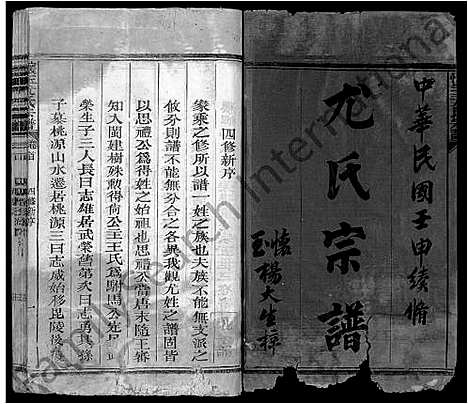 中華民國壬申續脩
尤氏宗譜
懷玉楊大生梓
四修新序
家乘之修所以譜一姓之族也夫族不能無支派之
攸分則譜不能無分合之各異我觀尤姓之譜固皆
以思禮公爲得姓之始祖也思禮公當唐末隨王審
知入閩建樹殊勲得尙公主王氏爲駙馬公
榮生子三人長曰志雄居武榮舊第次曰志勇其孫
子慕桃源山水遷居桃源三曰志咸始移毘陵後
四修新序
一